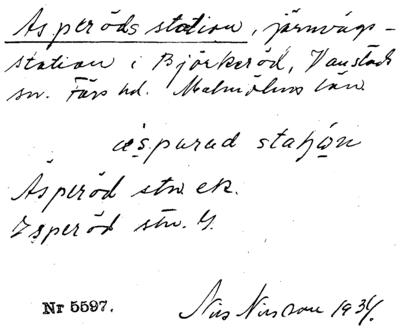 Äsperöds station, järnvägs-
station i Björkeröd, Vanstads
sn. Färs hd. Malmöhus län
äsparad stațo̲n
Äsperöd stn ek.
Esperöd stn. G.
Nr 5597.
Nils Nilsson 1934.